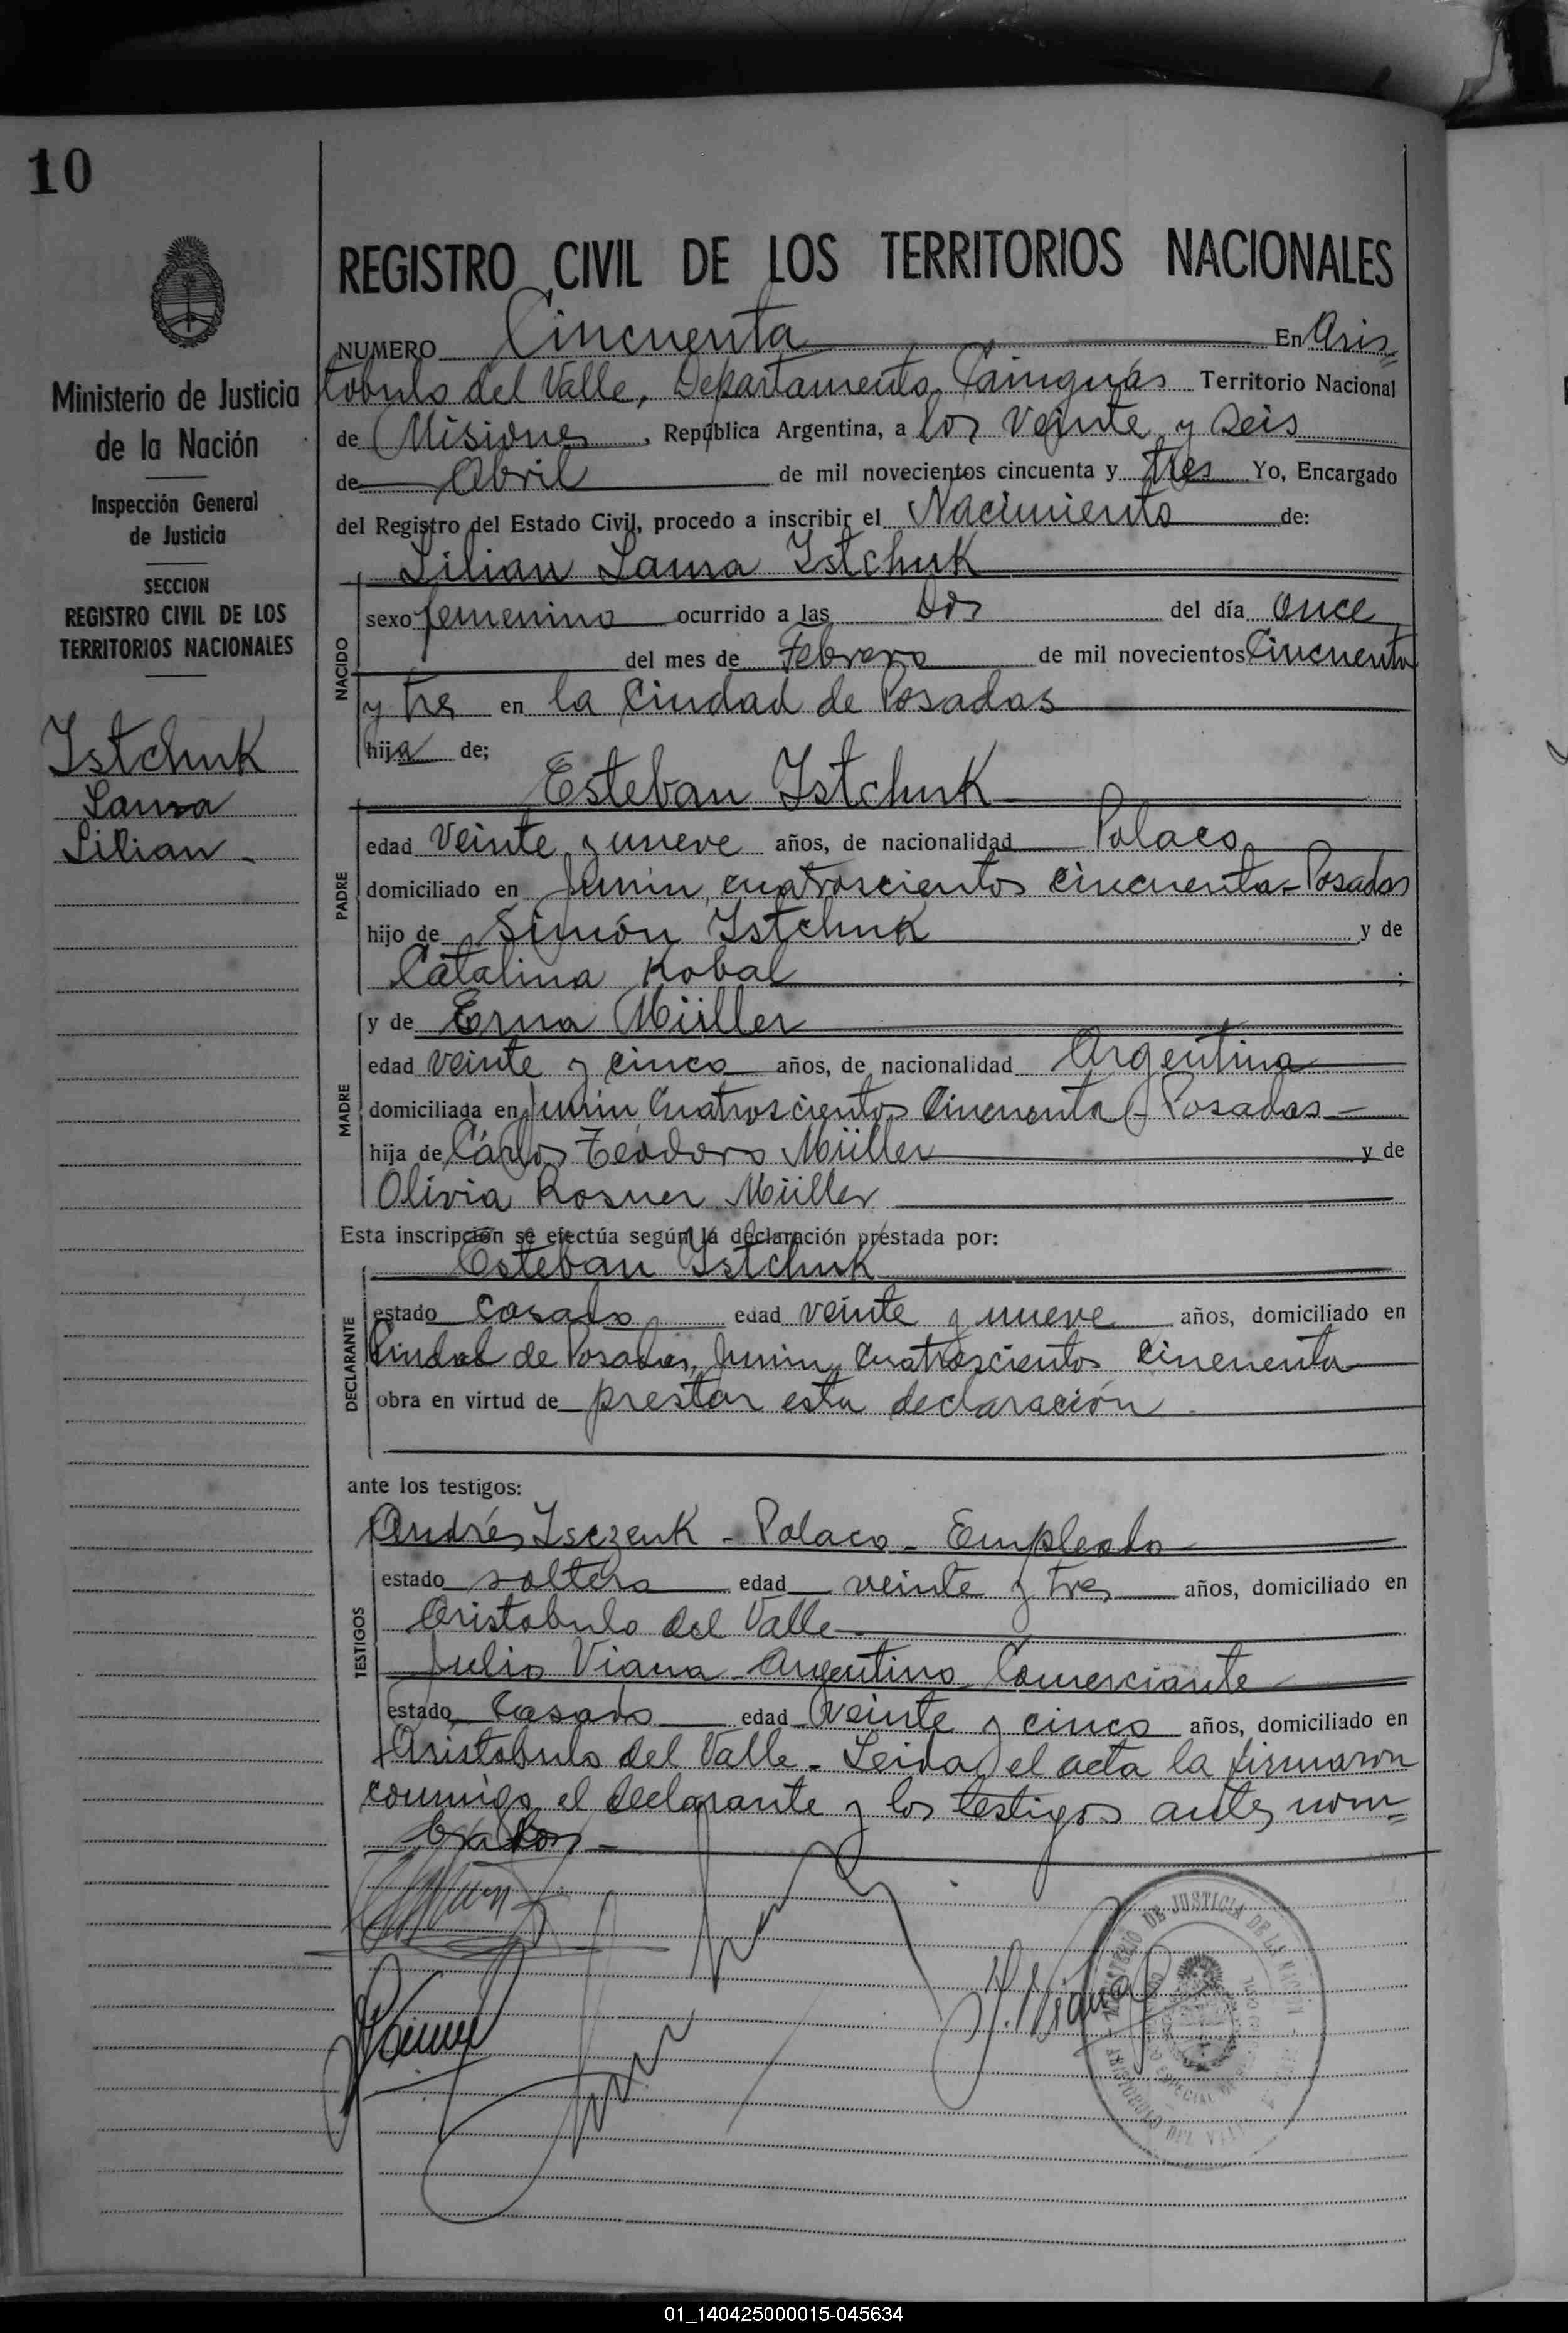 10
Ministerio de Justicia
de la Nación
Inspección General
de Justicia
SECCION
REGISTRO CIVIL DE LOS
TERRITORIOS NACIONALES
Istchuk
Laura
Lilian
REGISTRO CIVIL DE LOS TERRITORIOS NACIONALES
NUMERO Cincuenta En Aris=
tobulo del Valle, Departamento Cainguás Territorio Nacional
de Misiones, República Argentina, a los Veinte y seis
de Abril de mil novecientos cincuenta y tres Yo, Encargado
del Registro del Estado Civil, procedo a inscribir el Nacimiento de:
Lilian Laura Istchuk
NACIDO
sexo femenino ocurrido a las Dos del día once
del mes de Febrero de mil novecientos Cincuenta
y tres en la Ciudad de Posadas
hija de;
Esteban Istchuk
PADRE
edad Veinte y nueve años, de nacionalidad Polaco
domiciliado en Junin cuatroscientos cincuenta - Posadas
hijo de Simón Istchuk y de
Catalina Kobal;
MADRE
y de Erna Müller
edad veinte y cinco años, de nacionalidad Argentina
domiciliada en Junin Cuatroscientos Cincuenta - Posadas -
hija de Cárlos Teodoro Müller y de
Olivia Rosner Müller
Esta inscripción se efectúa según la declaración prestada por:
Esteban Istchuk
DECLARANTE
estado Casado edad veinte y nueve años, domiciliado en
Ciudad de Posadas, Junin Cuatroscientos Cincuenta
obra en virtud de prestar esta declaración
ante los testigos:
Andrés Isczenk - Polaco - Empleado
TESTIGOS
estado soltero edad veinte y tres años, domiciliado en
Aristobulo del Valle
Julio Viana - Argentino - Comerciante
estado Casado edad veinte y cinco años, domiciliado en
Aristobulo del Valle - Leida el acta la firmaron
conmigo el declarante y los testigos antes nom=
brados -
J. Viana
MINISTERIO DE JUSTICIA DE LA NACION
ARISTOBULO DEL VALLE
01_140425000015-045634